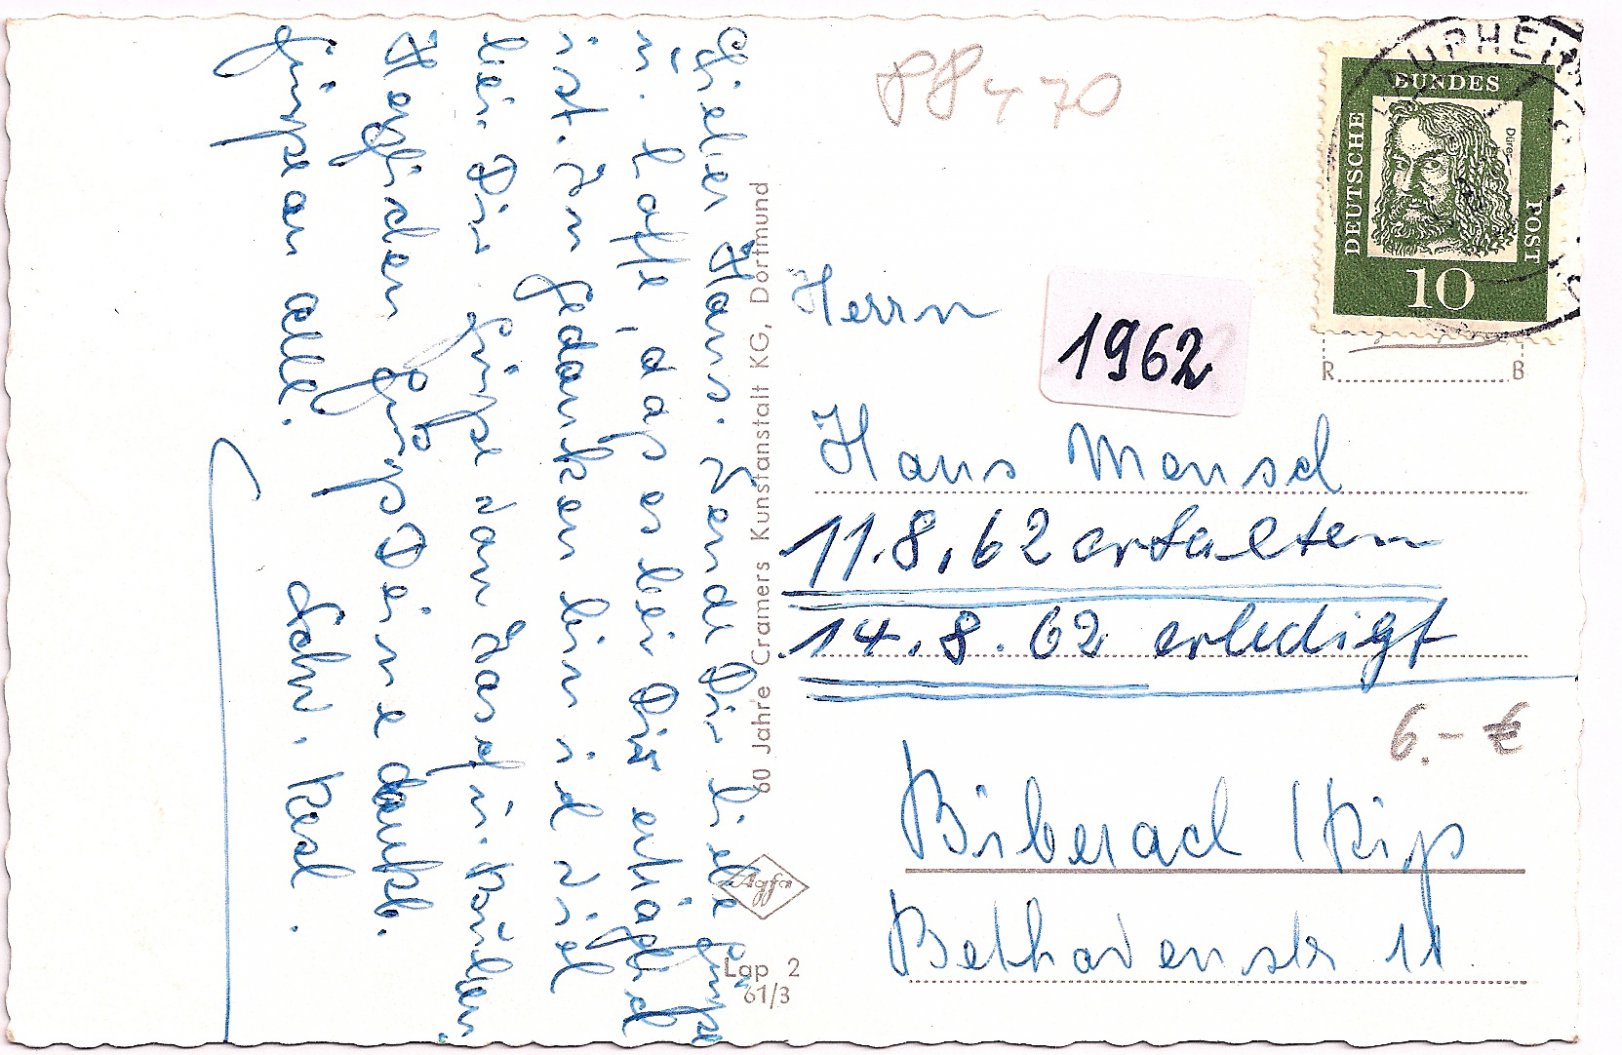 Lieber Hans. Sende Dir liebe Grüße
u. hoffe, daß es bei Dir erträglich
ist. In Gedanken bin ich viel
bei Dir. Grüße von Josef u.
Herzlichen Gruß Deine dankb.
Grüße an alle.
Schw.
60 Jahre Cramers Kunstanstalt KG, Dortmund
Agfa
Lap 2
61/3
PP 470
LAUPHEIM
DEUTSCHE BUNDESPOST
Dürer
10
R B
Herrn
1962
Hans Mensch
11.8.62 erhalten
14.8.62 erledigt
6.- €
Biberach / Riß
Bethovenstr 11